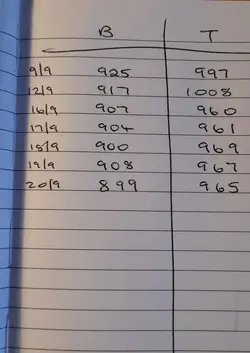 B T
9/9 925 997
12/9 917 1008
16/9 907 960
17/9 904 961
18/9 900 969
19/9 908 967
20/9 899 965